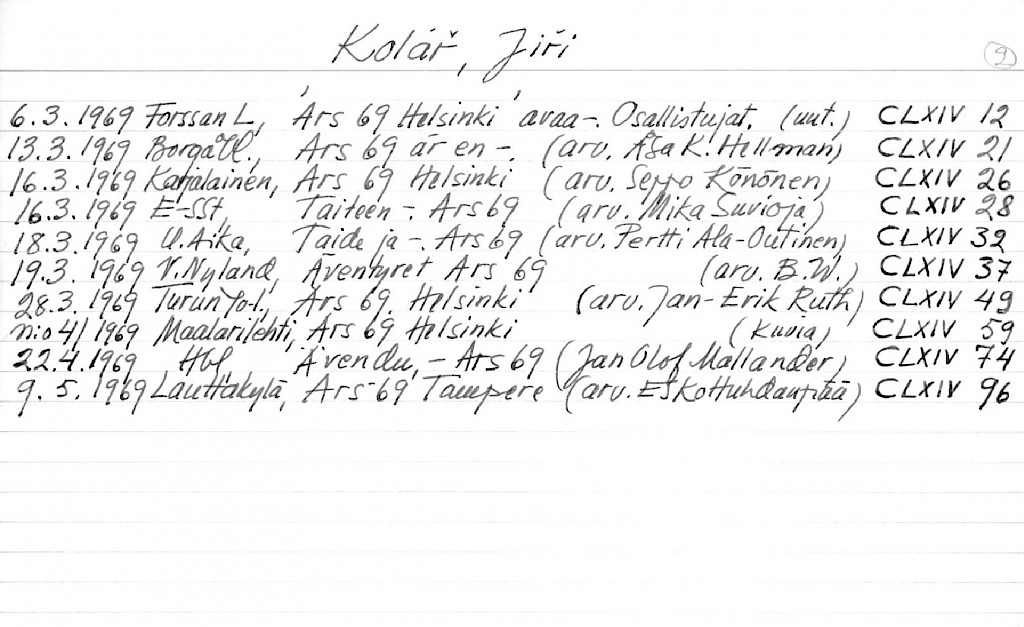 Kolář, Jiří
9
6.3.1969 Forssan L, 'Ars 69 Helsinki' avaa-. Osallistujat. (uut.) CLXIV 12
13.3.1969 Borgåbl., Ars 69 är en -. (arv. Åsa K. Hellman) CLXIV 21
16.3.1969 Karjalainen, Ars 69 Helsinki (arv. Seppo Könönen) CLXIV 26
16.3.1969 E-SSt, Taiteen -. Ars 69 (arv. Mika Suvioja) CLXIV 28
18.3.1969 U.Aika, Taide ja -. Ars 69 (arv. Pertti Ala-Outinen) CLXIV 32
19.3.1969 V.Nyland, Äventyret Ars 69 (arv. B.W.) CLXIV 37
28.3.1969 Turun Yo-l., Ars 69. Helsinki (arv. Jan-Erik Ruth) CLXIV 49
n:o 4/1969 Maalarilehti, Ars 69 Helsinki (kuvia) CLXIV 59
22.4.1969 Hbl, Även du, - Ars 69 (Jan Olof Mallander) CLXIV 74
9.5.1969 Lauttakylä, Ars 69 Tampere (arv. Esko Huhdanpää) CLXIV 96